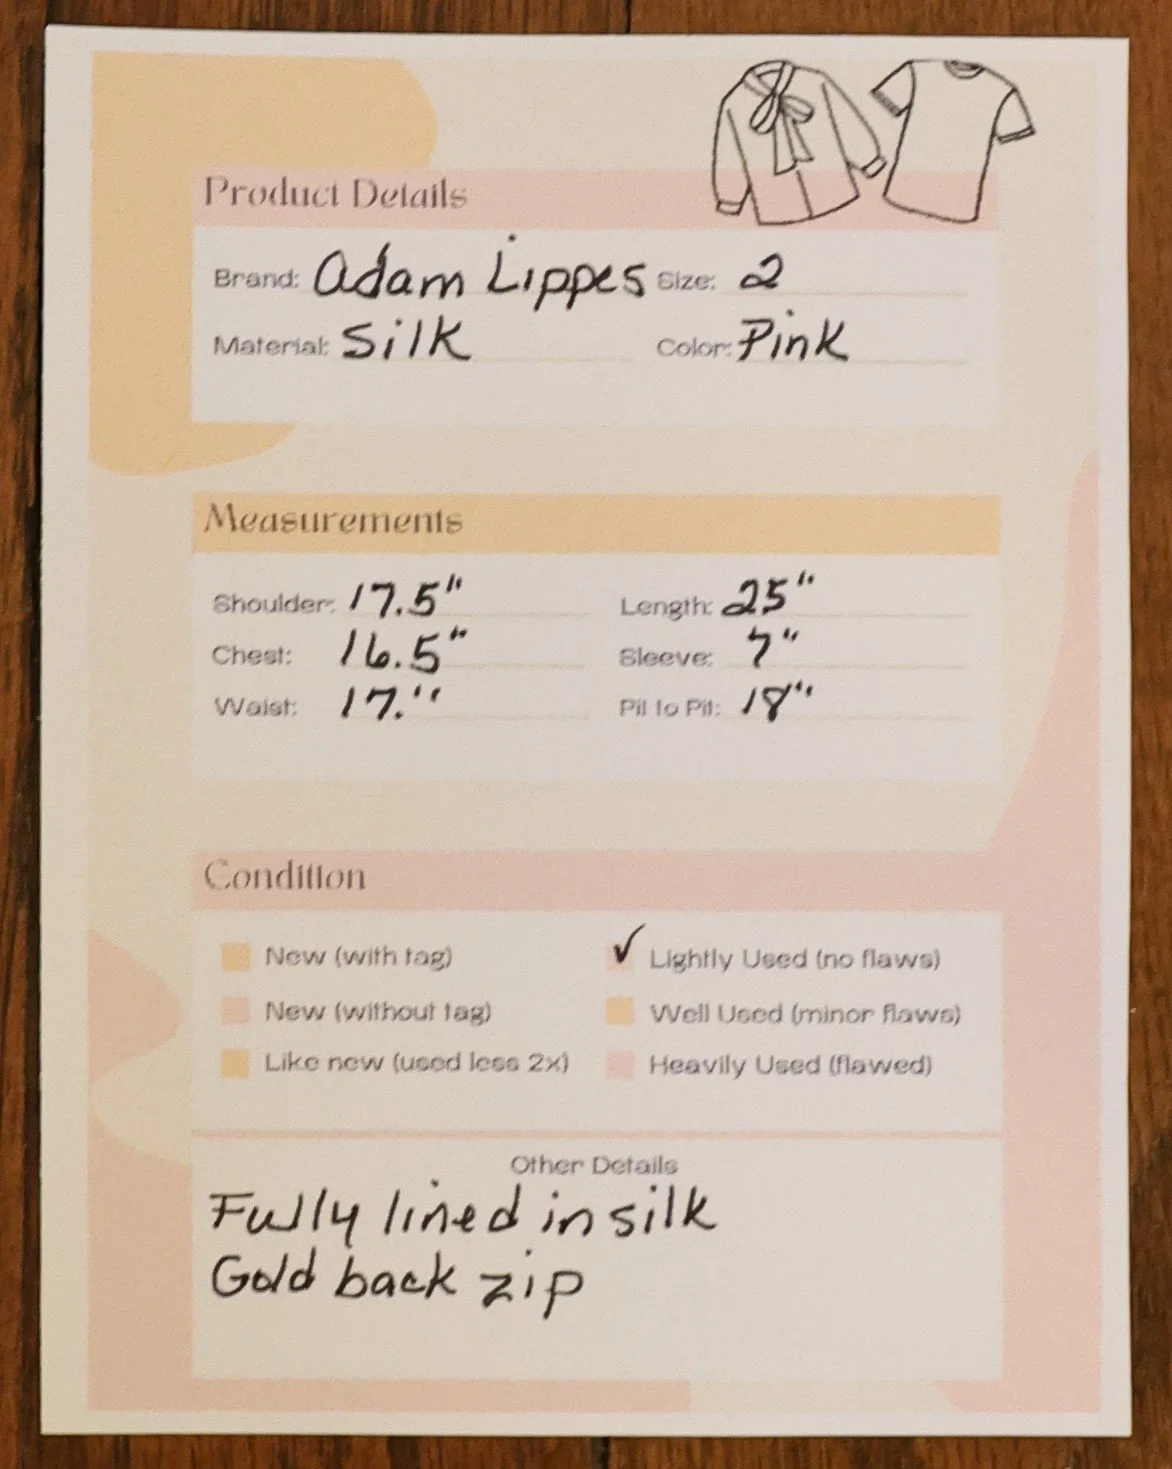 Product Details
Brand: Adam Lippes Size: 2
Material: Silk Color: Pink
Measurements
Shoulder: 17.5" Length: 25"
Chest: 16.5" Sleeve: 7"
Waist: 17." Pit to Pit: 18"
Condition
New (with tag) ✓ Lightly Used (no flaws)
New (without tag) Well Used (minor flaws)
Like new (used less 2x) Heavily Used (flawed)
Other Details
Fully lined in silk
Gold back zip